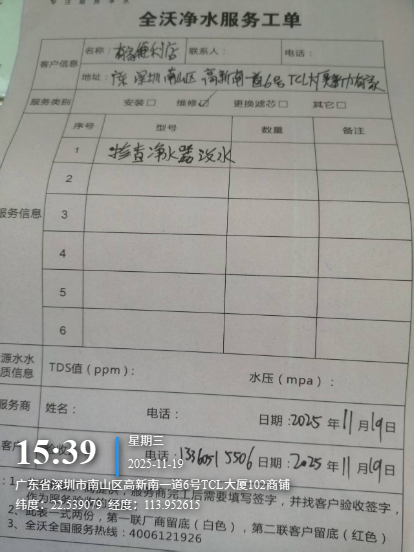 专 注 服 务 净 水
全沃净水服务工单
客户信息
名称：有家便利店 联系人： 电话：
地址：广东 深圳南山区 高新南一道6号TCL大厦
服务类别 安装□ 维修☑ 更换滤芯□ 其它□
服务信息
序号 型号 数量 备注
1 检查净水器没水
2
3
4
5
6
源水水
质信息
TDS值（ppm）： 水压（mpa）：
服务商 姓名： 电话： 日期：2025年11月19日
电话： 日期：2025年11月19日
15:39
星期三
2025-11-19
广东省深圳市南山区高新南一道6号TCL大厦102商铺
服务商完工后需要填写签字，并找客户验收签字，
纬度：22.539079 经度：113.952615
一式两份，第一联厂商留底（白色），第二联客户留底（红色）
3、全沃全国服务热线：4006121926